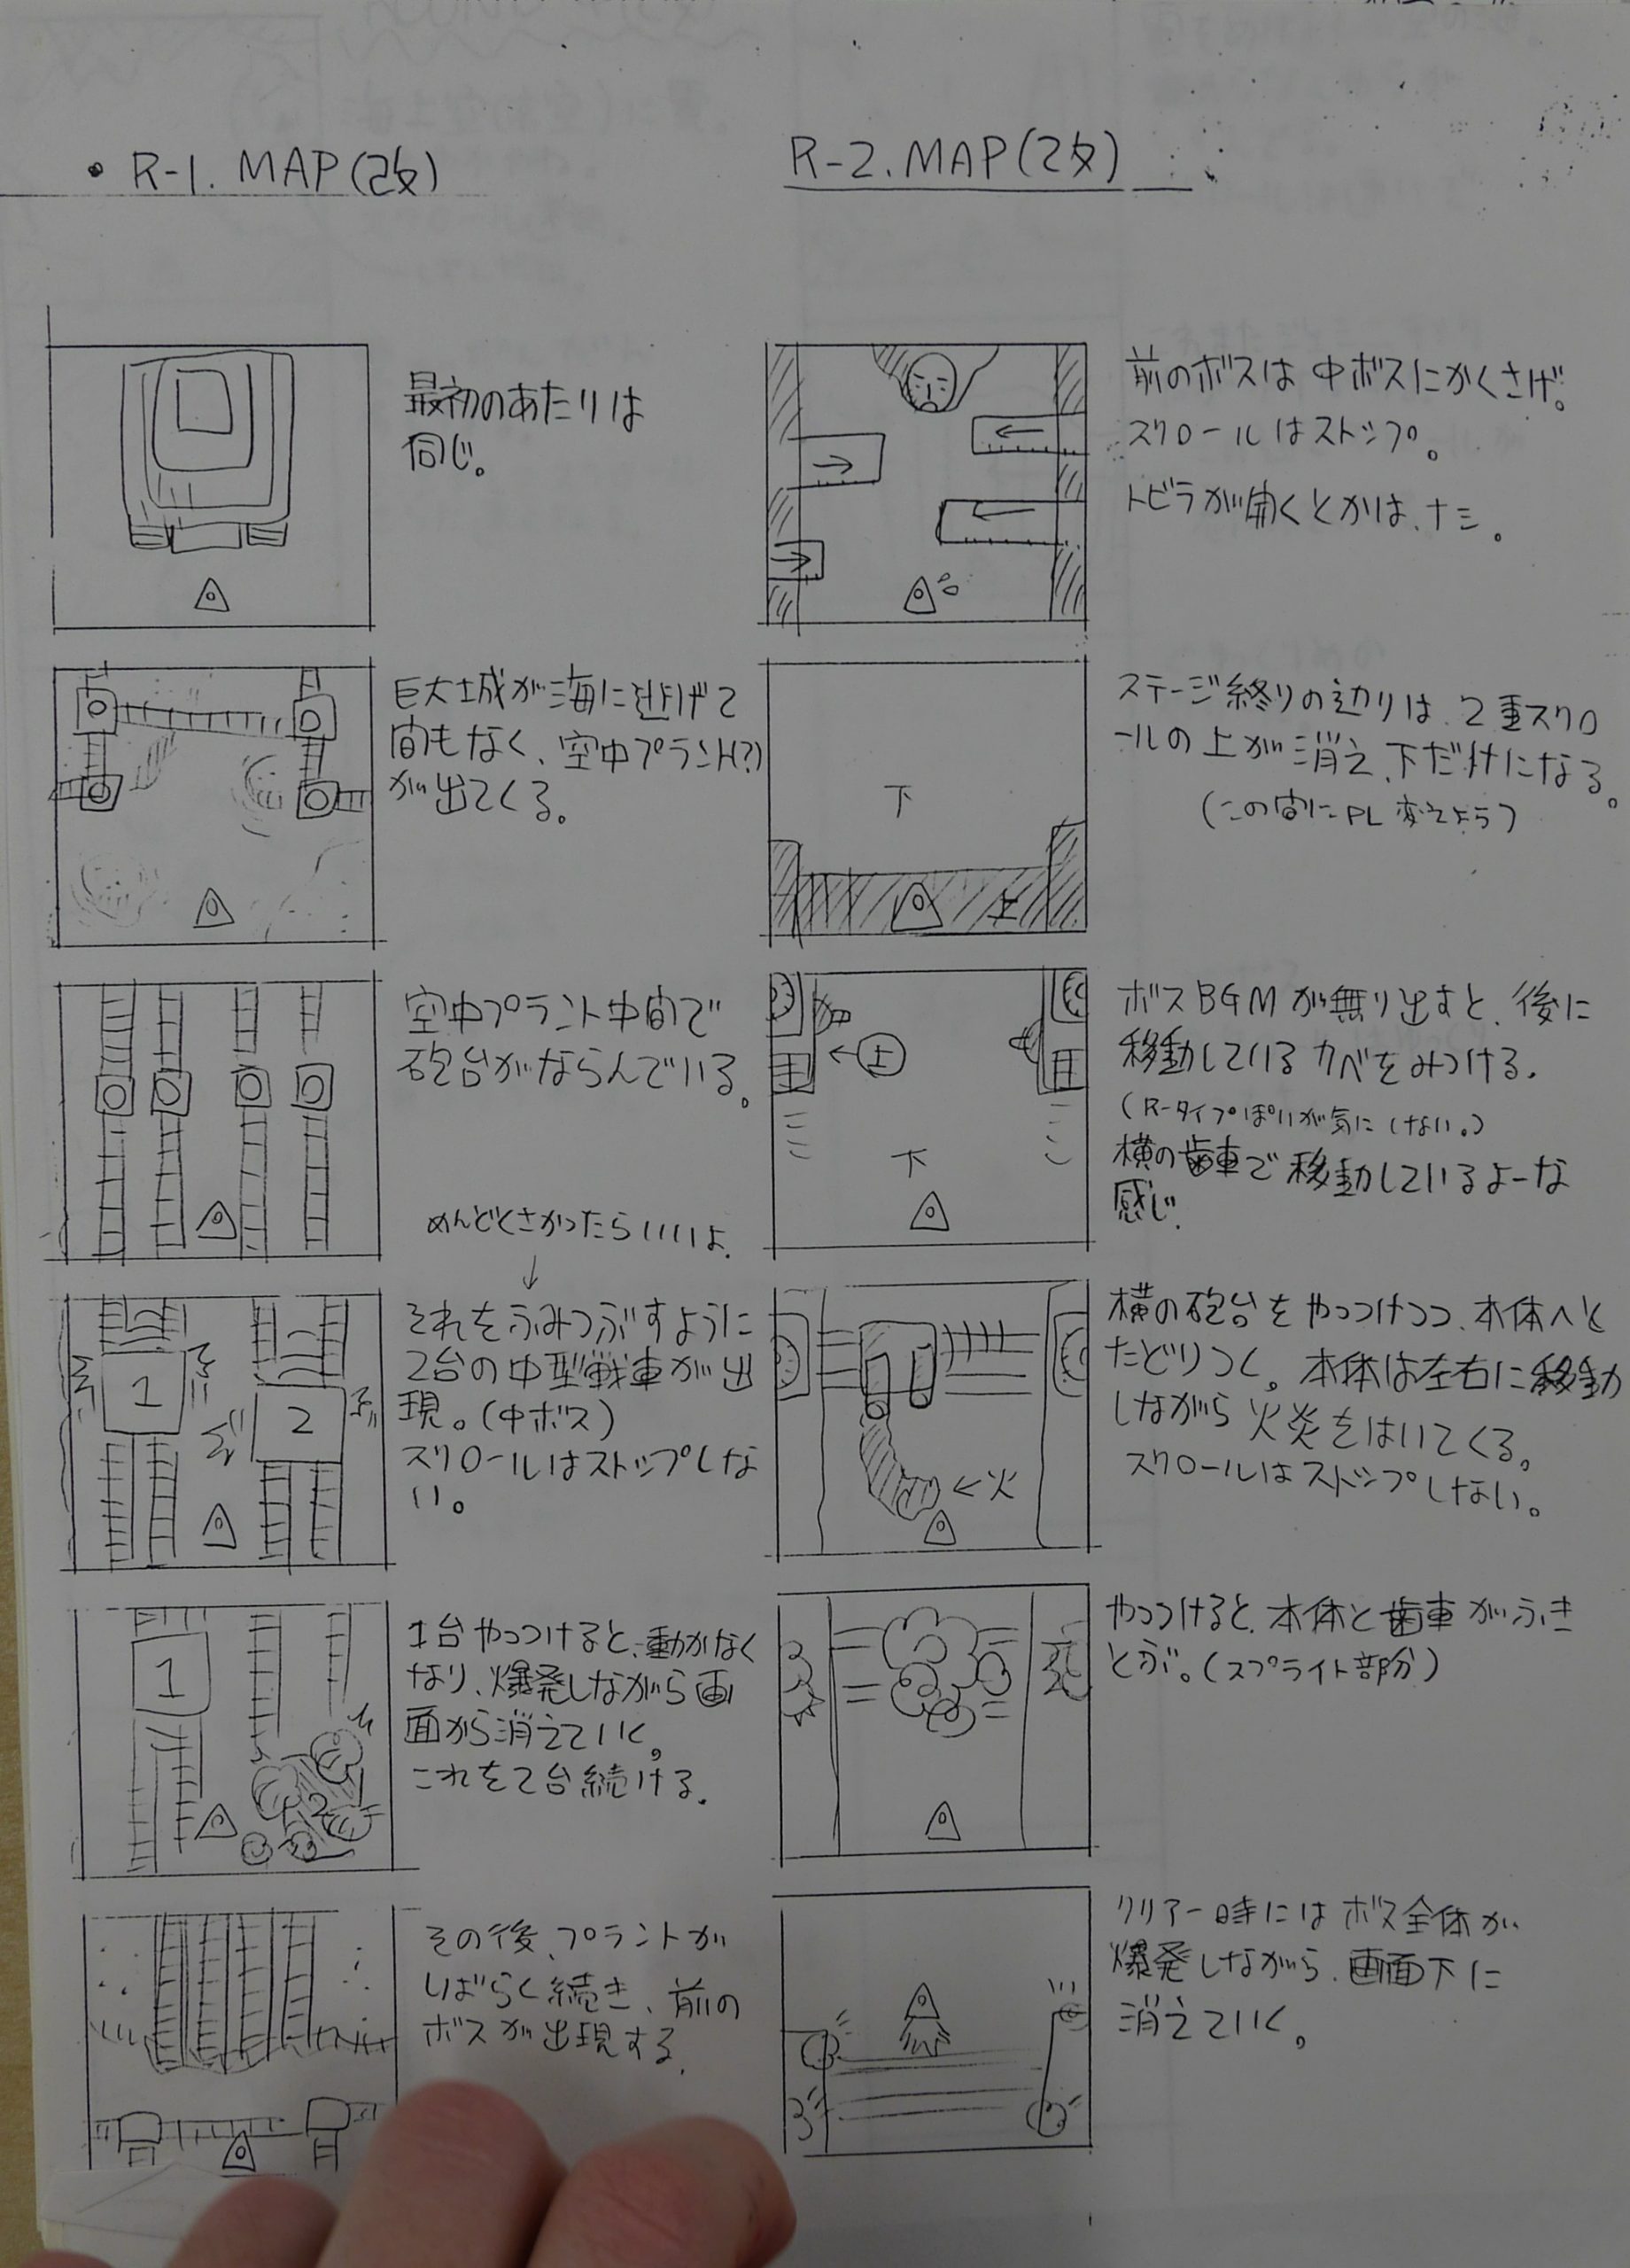 ・R-1. MAP(改)
最初のあたりは
同じ。
巨大城が海に逃げて
間もなく、空中プラント(?)
が出てくる。
空中プラント中間で
砲台がならんでいる。
めんどくさかったらいいよ.
↓
それをふみつぶすように
2台の中型戦車が出
現。(中ボス)
スクロールはストップしな
い。
1
2
1台やっつけると、動かなく
なり、爆発しながら画
面から消えていく。
これを2台続ける.
1
2
その後、プラントが
しばらく続き、前の
ボスが出現する.
R-2. MAP(改)
前のボスは中ボスにかくさげ。
スクロールはストップ。
トビラが開くとかは、ナシ。
→
←
←
→
ステージ終りの辺りは、2重スクロ
ールの上が消え、下だけになる。
(この間にPL変えよう)
下
上
ボスBGMが無り出すと、後に
移動しているカベをみつける.
(R-タイプぽいが気にしない。)
横の歯車で移動しているよーな
感じ.
←上
下
横の砲台をやっつけつつ、本体へと
たどりつく。本体は左右に移動
しながら火炎をはいてくる。
スクロールはストップしない。
←火
やっつけると、本体と歯車がふき
とぶ。(スプライト部分)
クリアー時にはボス全体が
爆発しながら、画面下に
消えていく。